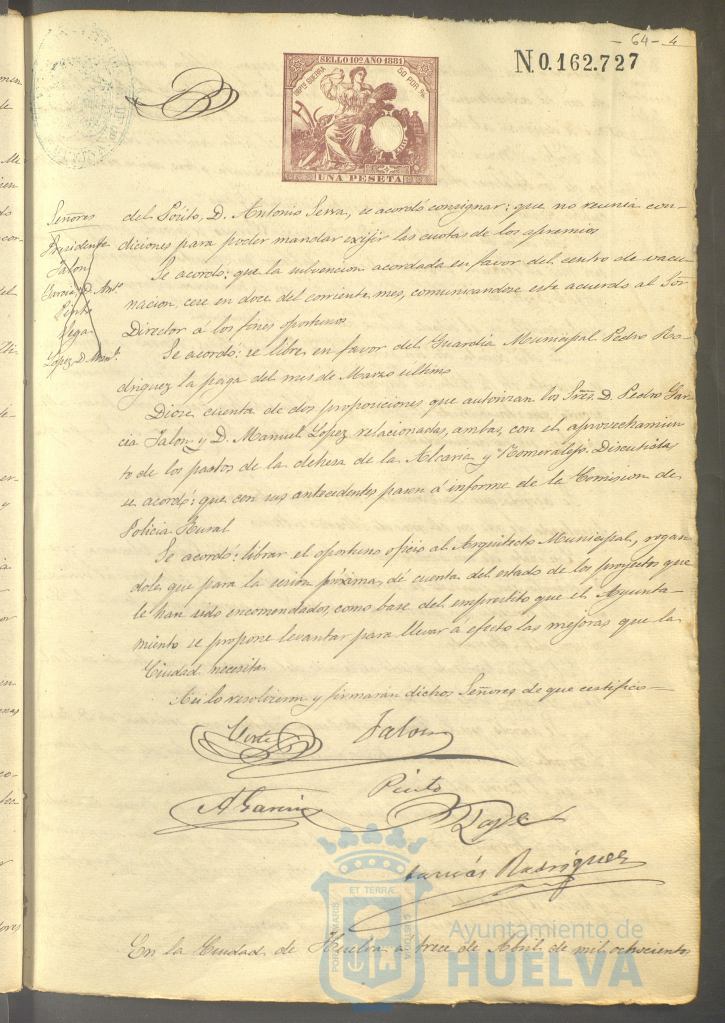 - 64 - 4
SELLO 10º AÑO 1881
IMPTO GUERRA 50 POR %
UNA PESETA
N0.162.727
Señores
Presidente
Jalon
Garcia, D. Antº
Pinto
Vega
Lopez D. Manl.
del Pósito, D. Antonio Serra, se acordó consignar: que no reunia con-
diciones para poder mandar exijir las cuotas de los apremios
Se acordó: que la subvencion acordada en favor del centro de vacu-
nacion, cese en doce del corriente mes, comunicandose este acuerdo al Sor
Director á los fines oportunos
Se acordó: se libre en favor del Guardia Municipal Pedro Ro-
driguez la paga del mes de Marzo ultimo
Diose cuenta de dos proposiciones que autorizan los Sres. D. Pedro Gar-
cia Jalon y D. Manuel Lopez relacionadas, ambas, con el aprovechamien-
to de los pastos de la dehesa de la Alcaria y Romeralejo. Discutidas
se acordó: que con sus antecedentes pasen á informe de la Comision de
Policia Rural
Se acordó: librar el oportuno oficio al Arquitecto Municipal, rogan
dole, que para la sesion próxima, dé cuenta del estado de los proyectos que
le han sido encomendados, como base del emprestito que el Ayunta-
miento se propone levantar para llevar á efecto las mejoras que la
Ciudad necesita
Asi lo resolvieron y firmaran dichos Señores de que certifico—
Jalon
A Garcia
Pinto
Rodriguez
En la Ciudad de Huelva á trece de Abril de mil ochocientos
PORTUS MARIS ET TERRÆ CUSTODIA
Ayuntamiento de
HUELVA